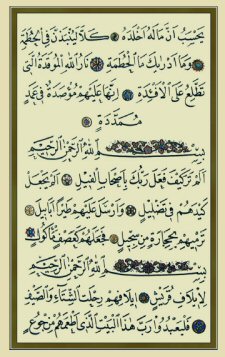 يَحْسَبُ اَنَّ مَالَهُ اَخْلَدَهُ كَلَّا لَيُنْبَذَنَّ فِي الْحُطَمَةِ
وَمَا اَدْرٰيكَ مَا الْحُطَمَةُ نَارُ اللّٰهِ الْمُوقَدَةُ الَّتِي
تَطَّلِعُ عَلَى الْاَفْئِدَةِ اِنَّهَا عَلَيْهِمْ مُؤْصَدَةٌ فِي عَمَدٍ
مُمَدَّدَةٍ
بِسْمِ اللّٰهِ الرَّحْمٰنِ الرَّحِيمِ
اَلَمْ تَرَ كَيْفَ فَعَلَ رَبُّكَ بِاَصْحَابِ الْفِيلِ اَلَمْ يَجْعَلْ
كَيْدَهُمْ فِي تَضْلِيلٍ وَاَرْسَلَ عَلَيْهِمْ طَيْرًا اَبَابِيلَ
تَرْمِيهِمْ بِحِجَارَةٍ مِنْ سِجِّيلٍ فَجَعَلَهُمْ كَعَصْفٍ مَأْكُولٍ
بِسْمِ اللّٰهِ الرَّحْمٰنِ الرَّحِيمِ
لِاِيلَافِ قُرَيْشٍ اِيلَافِهِمْ رِحْلَةَ الشِّتَاءِ وَالصَّيْفِ
فَلْيَعْبُدُوا رَبَّ هٰذَا الْبَيْتِ الَّذِي اَطْعَمَهُمْ مِنْ جُوعٍ